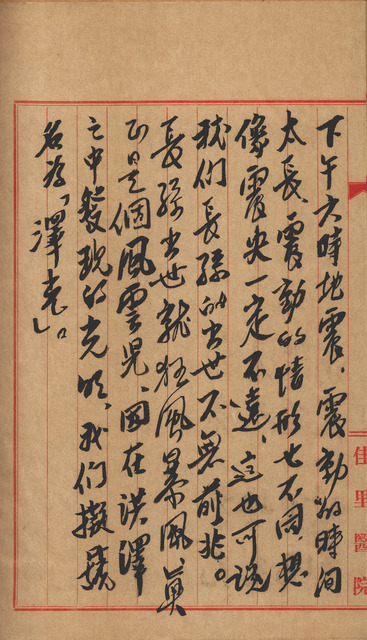 下午六時地震、震動的時间
太長、震動的情形也不同、想
像震央一定不遠、這也可說
我們長孫的出世不無前兆。
長孫出世就狂風暴風、真
正是個風雲児、因在洪澤
之中發現的光明、我們擬號
名為「澤光」。
佳里醫院